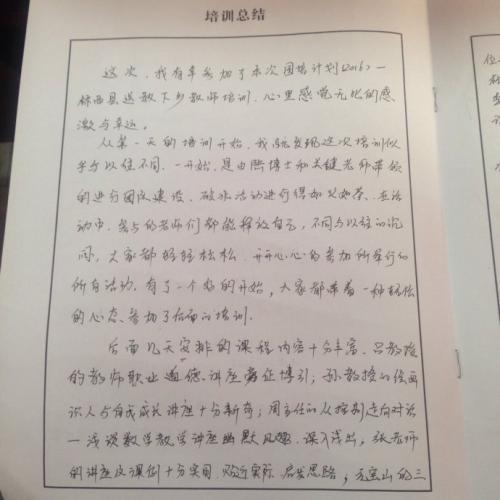 培训总结
这次,我有幸参加了本次国培计划(2016)一
林西县送教下乡教师培训,心里感觉无比的感
激与幸运。
从第一天的培训开始,我就发现这次培训似
乎与以往不同。一开始,是由陈博士和关键老师带领
的进行团队建设,破冰活动进行得如火如荼,在活
动中,参与的老师们都能释放自己,不同与以往的沉
闷,大家都轻轻松松、开开心心的参加所举行的
所有活动。有了一个好的开始,大家都带着一种轻松
的心态参加了后面的培训。
后面几天安排的课程内容十分丰富。吕教授
的教师职业道德讲座旁征博引;孙教授的绘画
识人与自我成长讲座十分新奇;周主任的从控制走向对话
一浅谈数学教学讲座幽默风趣、深入浅出,张老师
的讲座及课例十分实用、贴近实际、启发思路;宝山的三
位